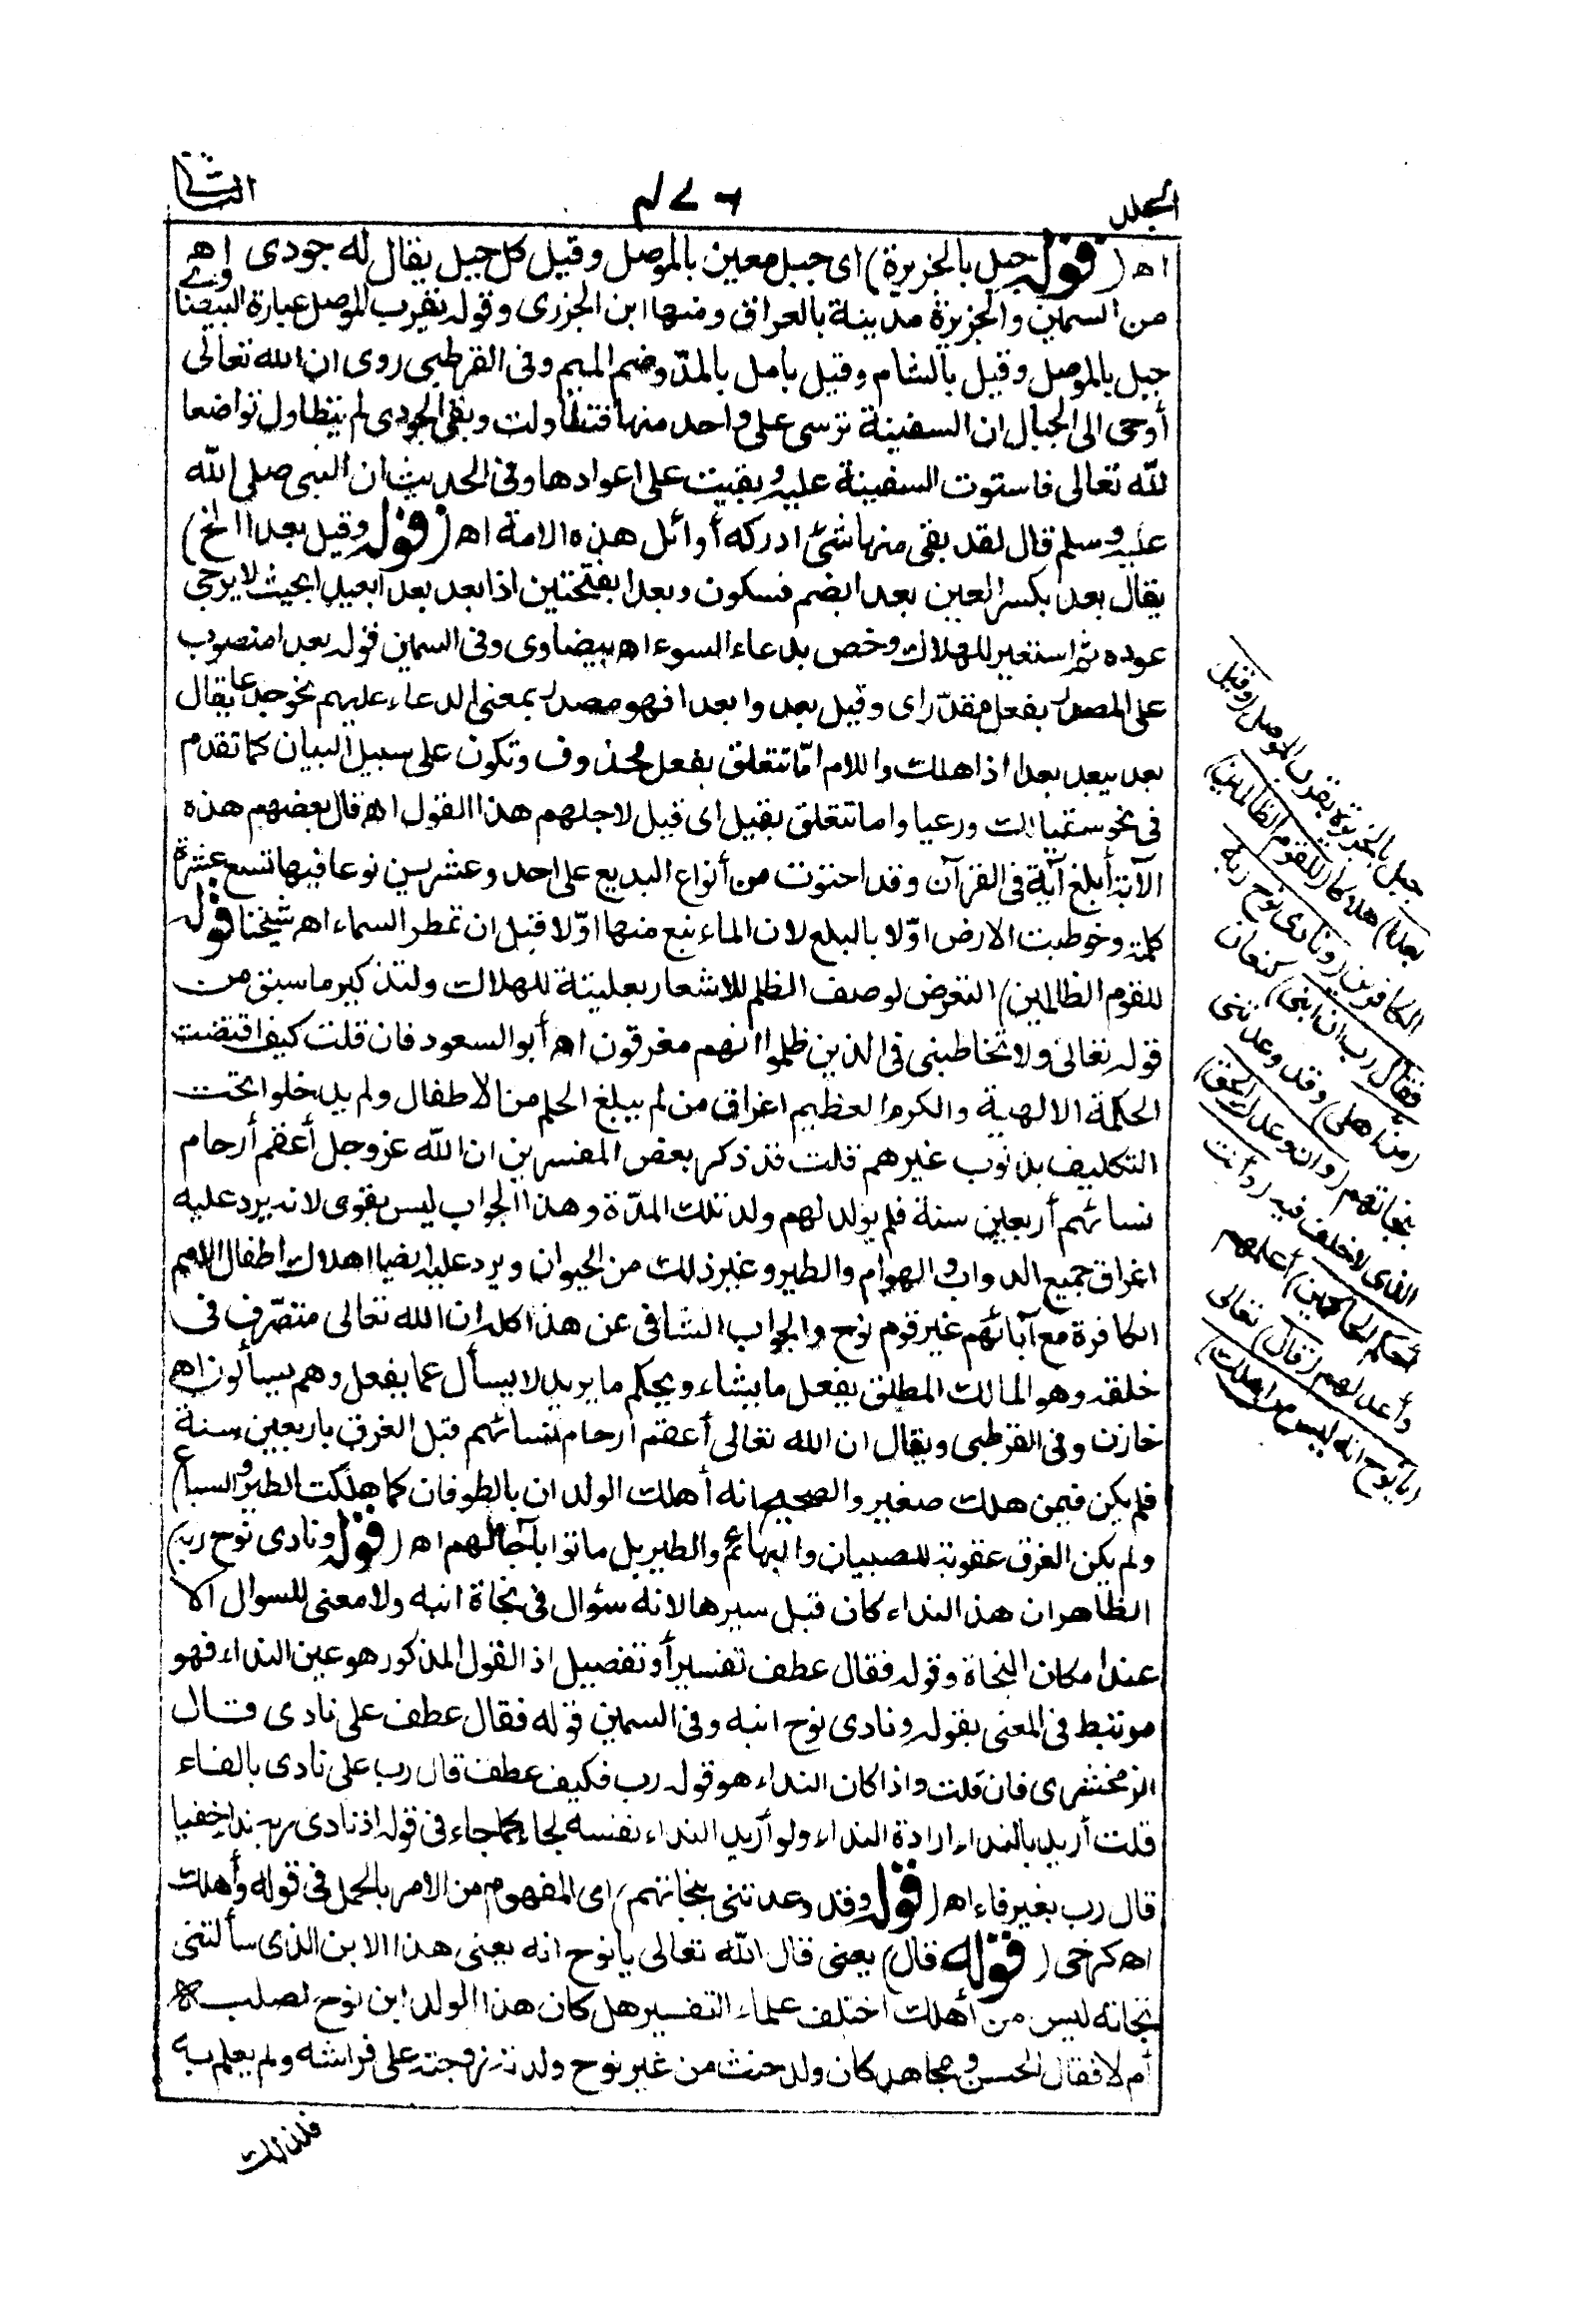 المجلد
الثانى
اھ (قوله جبل بالجزيرة) اى جبل معين بالموصل وقيل كل جبل يقال له جودى اھ
من السمين والجزيرة مدينة بالعراق ومنها ابن الجزرى وقوله بقرب الموصل عبارة البيضاوى
جبل بالموصل وقيل بالشام وقيل بامل بالمدّ وضم الميم وفى القرطبى روى ان الله تعالى
أوحى الى الجبال ان السفينة ترسى على واحد منها فتطاولت وبقى الجودى لم يتطاول تواضعا
لله تعالى فاستوت السفينة عليه وبقيت على اعوادها وفى الحديث ان النبى صلى الله
عليه وسلم قال لقد بقى منها شئ ادركه أوائل هذه الامة اھ (قوله وقيل بعدا الخ)
يقال بعد بكسر العين بعدا بضم فسكون وبعدا بفتحتين اذا بعد بعدا بعيدا بحيث لا يرجى
عوده ثم استعير للهلاك وخص بدعاء السوء اھ بيضاوى وفى السمين قوله بعدا منصوب
على المصدر بفعل مقدّر اى وقيل بعدوا بعدا فهو مصدر بمعنى الدعاء عليهم نحو جدعا يقال
بعد يبعد بعدا اذا هلك واللام امّا تتعلق بفعل محذوف وتكون على سبيل البيان كما تقدم
فى نحو سقيا لك ورعيا واما تتعلق بقيل اى قيل لاجلهم هذا القول اھ قال بعضهم هذه
الآية أبلغ آية فى القرآن وقد احتوت من أنواع البديع على احد وعشرين نوعا فيها تسع عشرة
كلمة وخوطبت الارض اوّلا بالبلع لان الماء نبع منها اوّلا قبل ان تمطر السماء اھ شيخنا قوله
للقوم الظالمين) التعرض لوصف الظلم للاشعار بعليته للهلاك ولتذكير ما سبق من
قوله تعالى ولا تخاطبنى فى الذين ظلموا انهم مغرقون اھ أبو السعود فان قلت كيف اقتضت
الحكمة الالهية والكرم العظيم اغراق من لم يبلغ الحلم من الاطفال ولم يدخلوا تحت
التكليف بذنوب غيرهم قلت قد ذكر بعض المفسرين ان الله عز وجل أعقم أرحام
نسائهم أربعين سنة فلم يولد لهم ولد تلك المدّة وهذا الجواب ليس بقوى لانه يرد عليه
اغراق جميع الدواب والهوام والطير وغير ذلك من الحيوان ويرد عليه ايضا اهلاك اطفال الامم
الكافرة مع آبائهم غير قوم نوح والجواب الشافى عن هذا كله ان الله تعالى متصّرف فى
خلقه وهو المالك المطلق يفعل ما يشاء ويحكم ما يريد لا يسأل عما يفعل وهم يسألون اھ
خازن وفى القرطبى ويقال ان الله تعالى أعقم ارحام نسائهم قبل الغرق باربعين سنة
فلم يكن فيمن هلك صغير والصحيح انه أهلك الولدان بالطوفان كما هلكت الطير والسباع
ولم يكن الغرق عقوبة للصبيان والبهائم والطير بل ماتوا بآجالهم اھ (قوله ونادى نوح ربه)
الظاهر ان هذا النداء كان قبل سيرها لانه سؤال فى نجاة ابنه ولا معنى للسوال الا
عند امكان النجاة وقوله فقال عطف تفسير أو تفصيل اذ القول المذكور هو عين النداء فهو
مرتبط فى المعنى بقوله ونادى نوح ابنه وفى السمين قوله فقال عطف على نادى قال
الزمخشرى فان قلت واذا كان النداء هو قوله رب فكيف عطف قال رب على نادى بالفاء
قلت أريد بالنداء ارادة النداء ولو أريد النداء نفسه لجاء كما جاء فى قوله اذ نادى ربه نداء خفيا
قال رب بغير فاء اھ (قوله وقد وعدتنى بنجاتهم) اى المفهوم من الامر بالحمل فى قوله وأهلك
اھ كرخى (قوله قال) يعنى قال الله تعالى يا نوح انه يعنى هذا الابن الذى سألتنى
نجاته ليس من أهلك اختلف علماء التفسير هل كان هذا الولد ابن نوح لصلبه
أم لا فقال الحسن ومجاهد كان ولد حنث من غير نوح ولدته زوجته على فراشه ولم يعلم به
فلذلك
جبل بالجزيرة بقرب الموصل (وقيل
بعدا) هلاكا (للقوم الظالمين)
الكافرين (ونادى نوح ربه
فقال رب ان ابنى) كنعان
(من أهلى) وقد وعدتنى
بنجاتهم (وان وعدك الحق)
الذى لا خلف فيه (وأنت
أحكم الحاكمين) أعلمهم
وأعدلهم (قال) تعالى
(يا نوح انه ليس من اهلك)